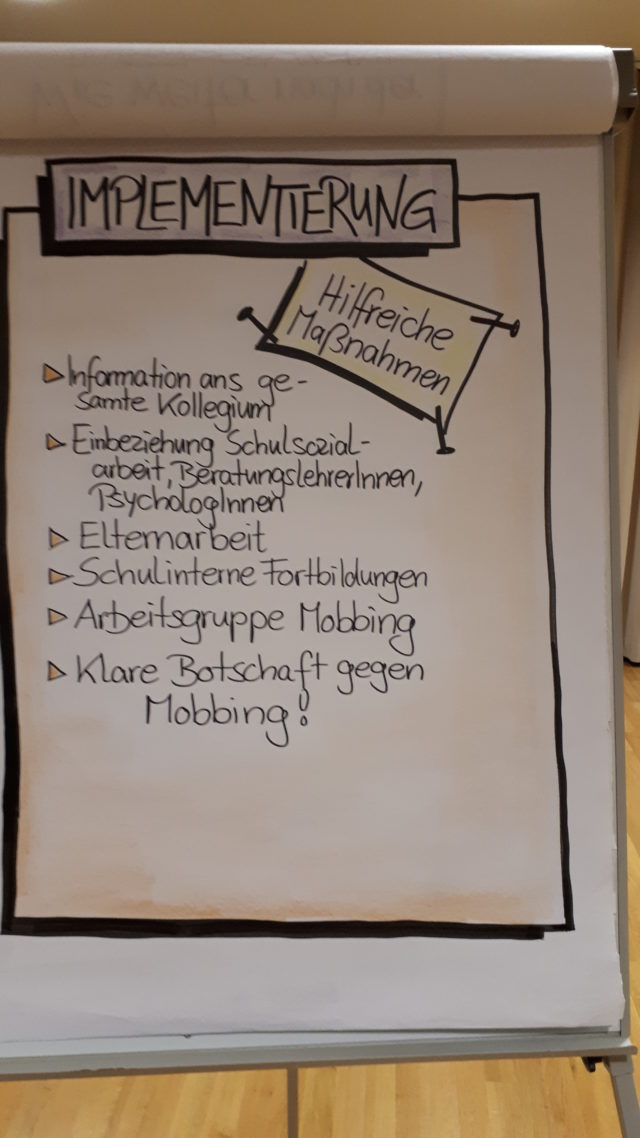 Wie weiter nach der
IMPLEMENTIERUNG
Hilfreiche
Maßnahmen
Information ans ge-
samte Kollegium
Einbeziehung Schulsozial-
arbeit, BeratungslehrerInnen,
PsychologInnen
Elternarbeit
Schulinterne Fortbildungen
Arbeitsgruppe Mobbing
Klare Botschaft gegen
Mobbing!